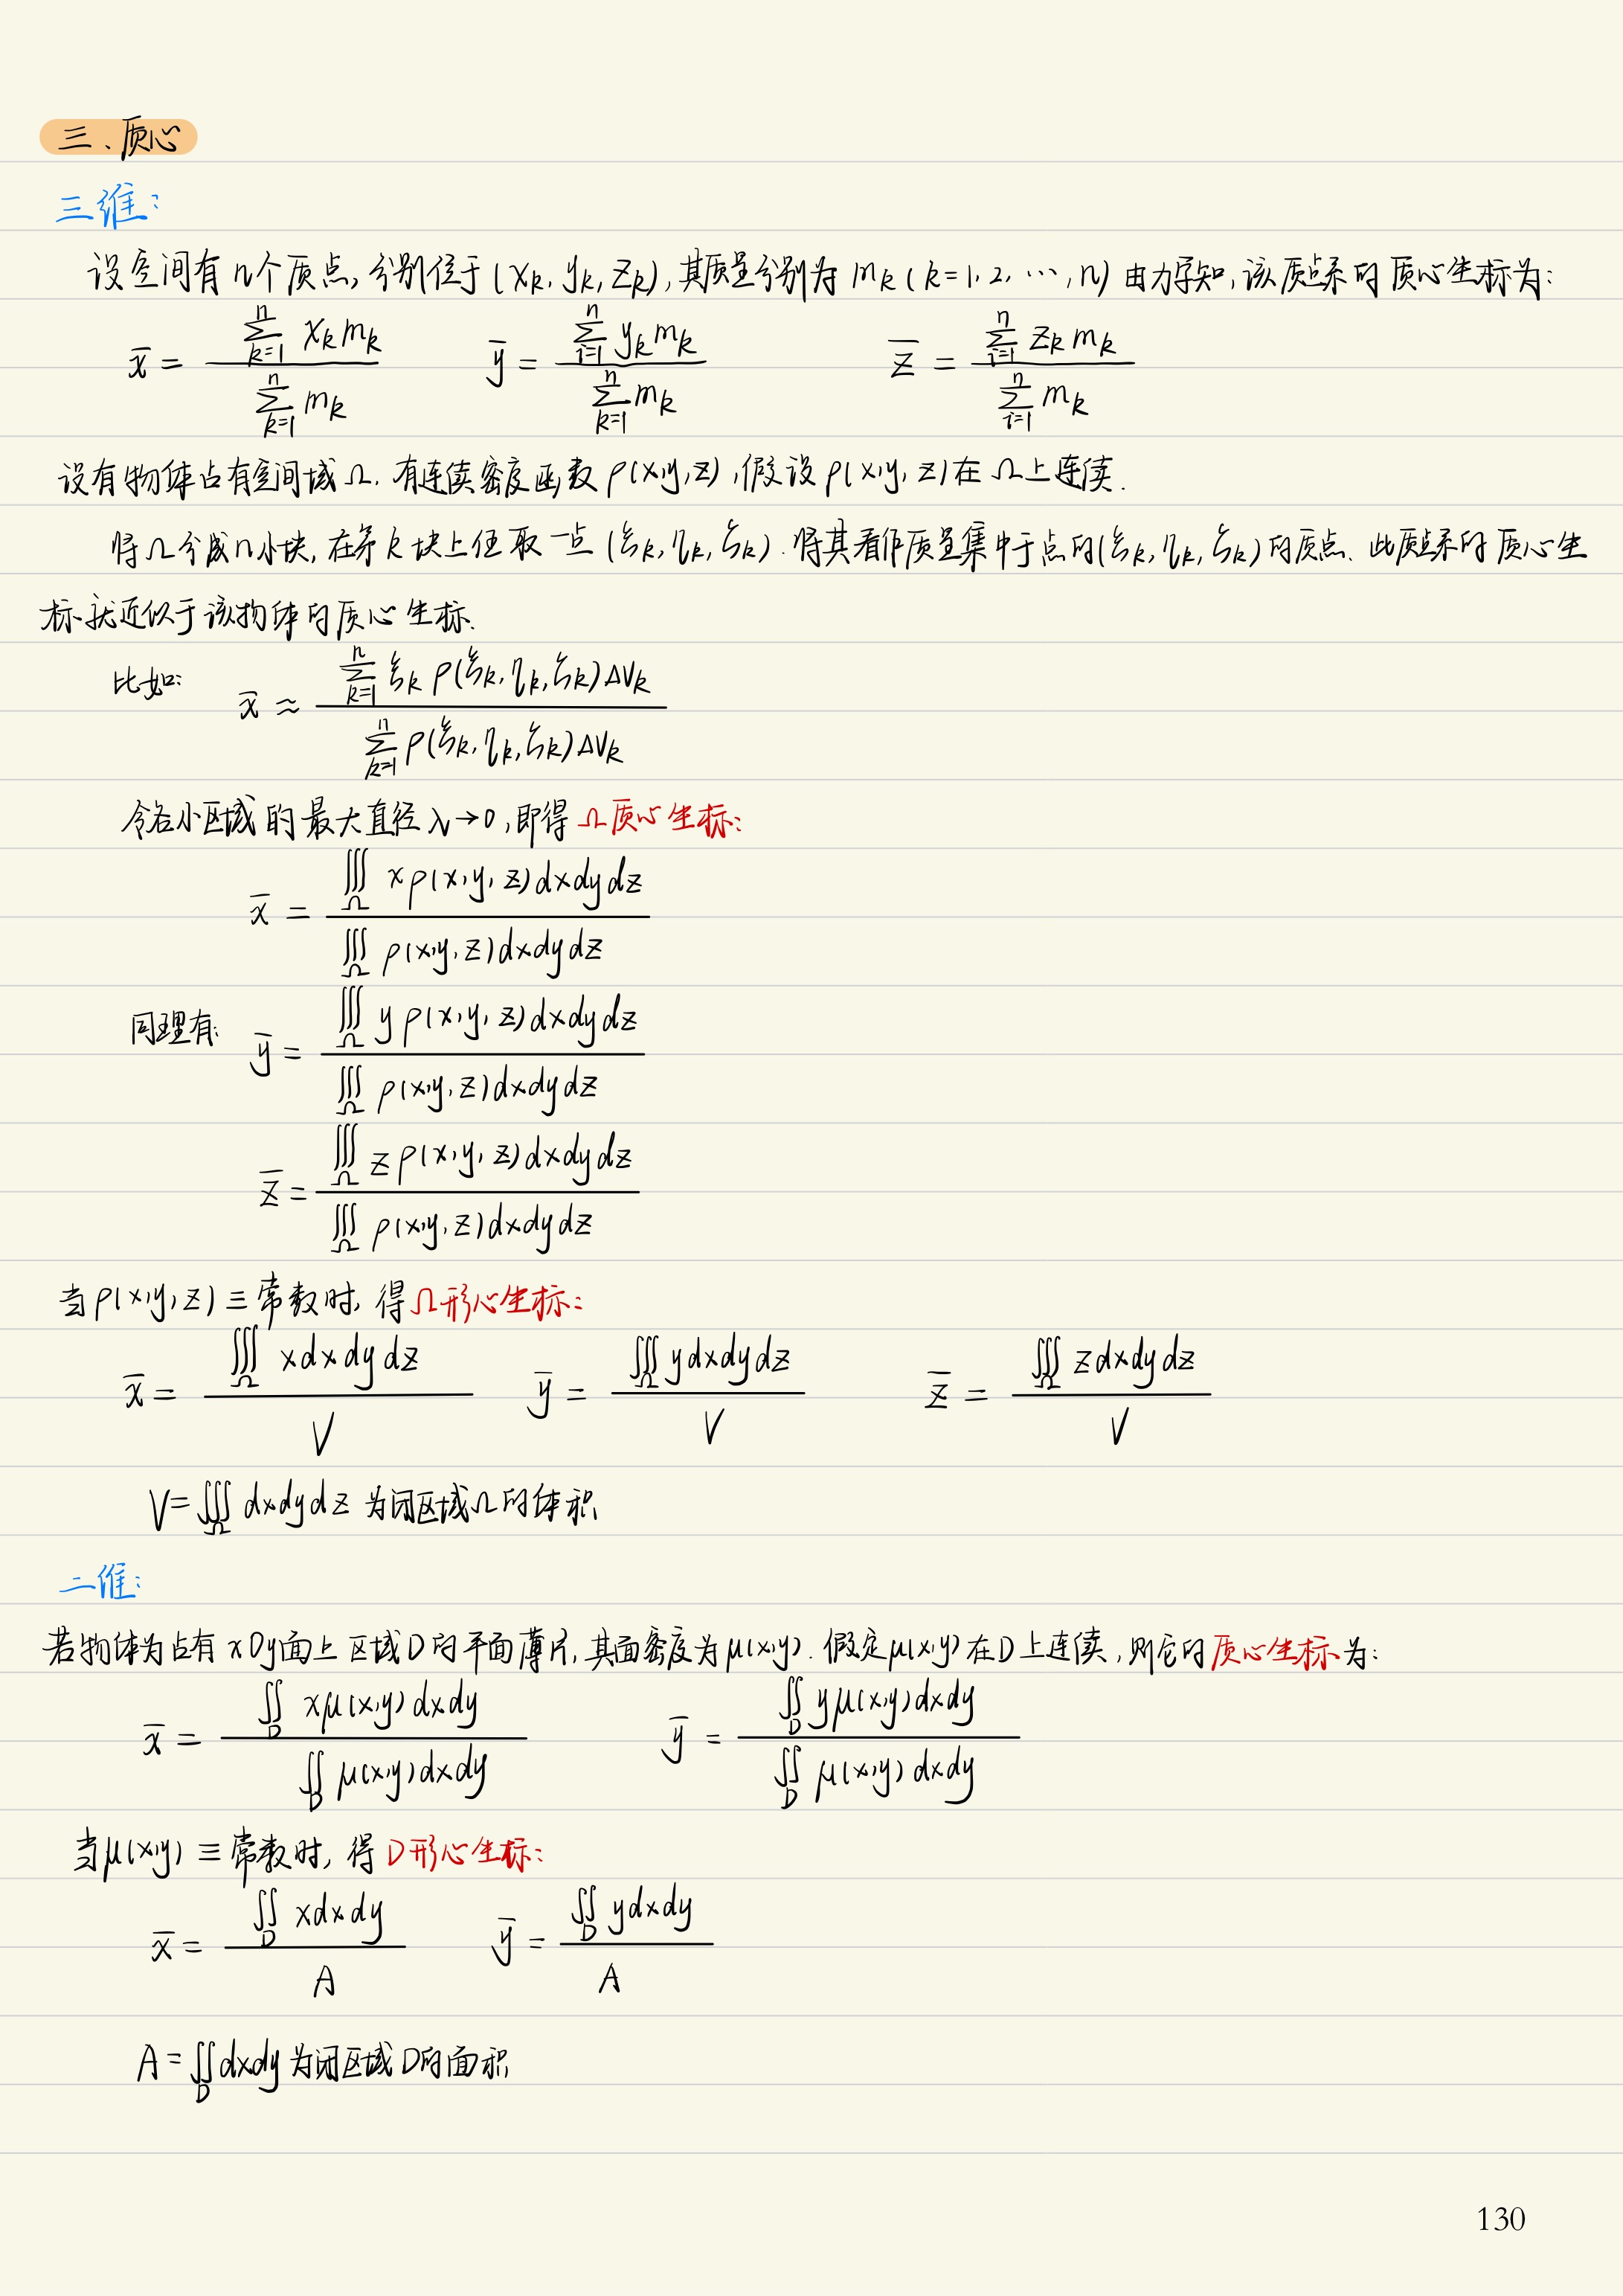 三、质心
三维:
设空间有n个质点,分别位于(x_k, y_k, z_k),其质量分别为 m_k (k=1, 2, ⋯, n) 由力学知,该质点系的质心坐标为:
x̄ = \frac{\sum_{k=1}^{n} x_k m_k}{\sum_{k=1}^{n} m_k}  ȳ = \frac{\sum_{i=1}^{n} y_k m_k}{\sum_{k=1}^{n} m_k}  z̄ = \frac{\sum_{i=1}^{n} z_k m_k}{\sum_{i=1}^{n} m_k}
设有物体占有空间域Ω, 有连续密度函数 ρ(x,y,z),假设 ρ(x,y,z)在Ω上连续.
将Ω分成n小块,在第k块上任取一点 (ξ_k, η_k, ζ_k). 将其看作质量集中于点的(ξ_k, η_k, ζ_k)的质点、此质点系的质心坐
标就近似于该物体的质心坐标.
比如: x̄ ≈ \frac{\sum_{k=1}^{n} ξ_k ρ(ξ_k, η_k, ζ_k)ΔV_k}{\sum_{k=1}^{n} ρ(ξ_k, η_k, ζ_k)ΔV_k}
令各小区域的最大直径λ→0,即得Ω质心坐标:
x̄ = \frac{∭_Ω xρ(x,y,z)dxdydz}{∭_Ω ρ(x,y,z)dxdydz}
同理有: ȳ = \frac{∭_Ω yρ(x,y,z)dxdydz}{∭_Ω ρ(x,y,z)dxdydz}
z̄ = \frac{∭_Ω zρ(x,y,z)dxdydz}{∭_Ω ρ(x,y,z)dxdydz}
当ρ(x,y,z)≡常数时, 得Ω形心坐标:
x̄ = \frac{∭_Ω xdxdydz}{V}  ȳ = \frac{∭_Ω ydxdydz}{V}  z̄ = \frac{∭_Ω zdxdydz}{V}
V=∭_Ω dxdydz 为闭区域Ω的体积
二维:
若物体为占有xOy面上区域D的平面薄片,其面密度为μ(x,y). 假定μ(x,y)在D上连续,则它的质心坐标为:
x̄ = \frac{∬_D xμ(x,y)dxdy}{∬_D μ(x,y)dxdy}  ȳ = \frac{∬_D yμ(x,y)dxdy}{∬_D μ(x,y)dxdy}
当μ(x,y)≡常数时, 得D形心坐标:
x̄ = \frac{∬_D xdxdy}{A}  ȳ = \frac{∬_D ydxdy}{A}
A=∬_D dxdy为闭区域D的面积
130